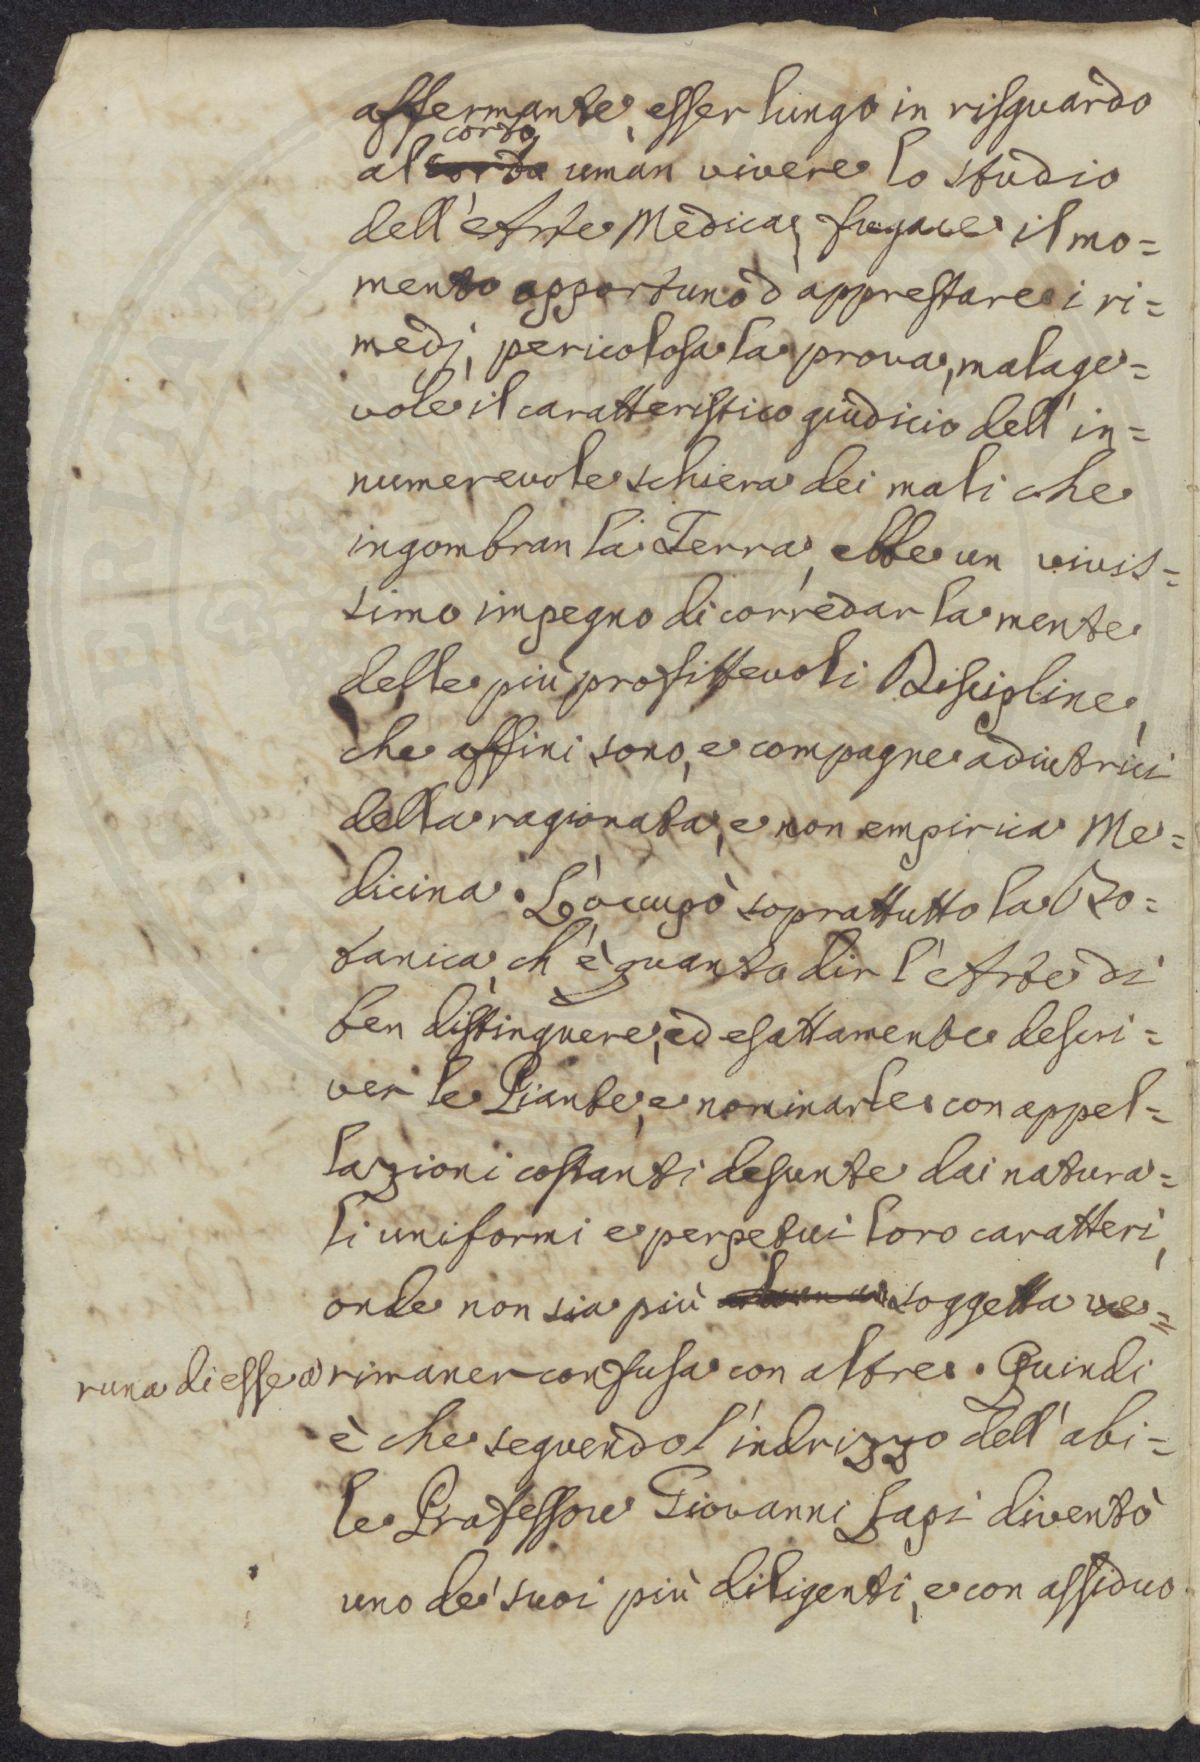 affermante, esser lungo in risguardo
corto
al corto uman vivere lo studio
dell'Arte Medica, fugace il mo=
mento opportuno d'apprestare i ri=
medj, pericolosa la prova, malage=
vole il caratteristico giudicio dell'in=
numerevole schiera dei mali che
ingombran la Terra, ebbe un vivis=
simo impegno di corredar la mente
delle più profittevoli Discipline,
che affini sono, e compagne adiutrici
della ragionata, e non empirica Me=
dicina. L'occupò soprattutto la Bo=
tanica, ch'è quanto dir l'Arte di
ben distinguere, ed esattamente descri=
ver le Piante, e nominarle con appel=
lazioni costanti desunte dai natura=
li uniformi e perpetui loro caratteri,
onde non sia più soggetta ve=
runa di esse a rimaner confusa con altre. Quindi
è che seguendo l'indrizzo dell'abi=
le Professore Giovanni Lapi diventò
uno de' suoi più diligenti, e con assiduo